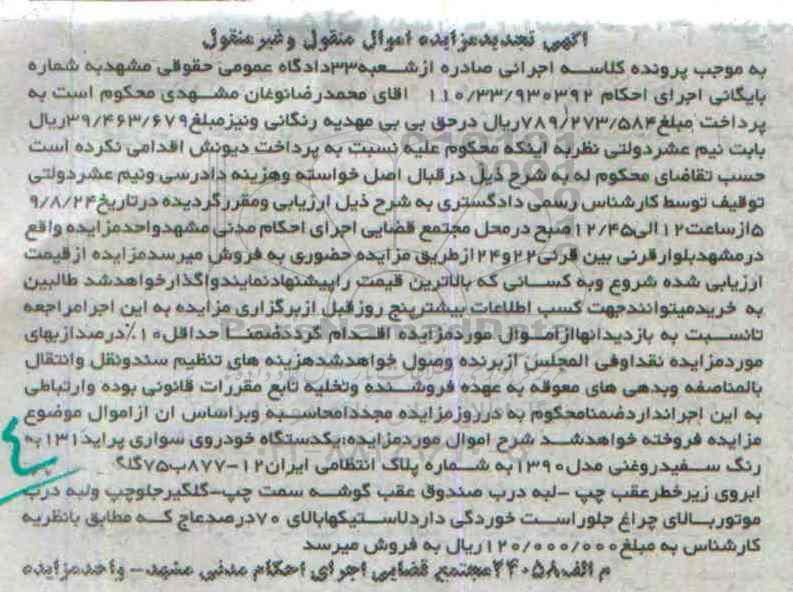 اگهی تجدیدمزایده اموال منقول وغیرمنقول
به موجب پرونده کلاسه اجرائی صادره ازشعبه۳۳دادگاه عمومی حقوقی مشهدبه شماره
بایگانی اجرای احکام ۱۱۰/۳۳/۹۳۰۳۹۲ اقای محمدرضانوغان مشهدی محکوم است به
پرداخت مبلغ۷۸۹/۲۷۳/۵۸۴ریال درحق بی بی مهدیه رنگانی ونیزمبلغ۳۹/۴۶۳/۶۷۹ریال
بابت نیم عشردولتی نظربه اینکه محکوم علیه نسبت به پرداخت دیونش اقدامی نکرده است
حسب تقاضای محکوم له به شرح ذیل درقبال اصل خواسته وهزینه دادرسی ونیم عشردولتی
توقیف توسط کارشناس رسمی دادگستری به شرح ذیل ارزیابی ومقررگردیده درتاریخ۹/۸/۲۴
۵ازساعت۱۲الی۱۲/۴۵صبح درمحل مجتمع قضایی اجرای احکام مدنی مشهدواحدمزایده واقع
درمشهدبلوارقرنی بین قرنی۲۲و۲۴ازطریق مزایده حضوری به فروش میرسدمزایده ازقیمت
ارزیابی شده شروع وبه کسانی که بالاترین قیمت راپیشنهادنمایندواگذارخواهدشد طالبین
به خریدمیتوانندجهت کسب اطلاعات بیشترپنج روزقبل ازبرگزاری مزایده به این اجرامراجعه
تانسبت به بازدیدانهاازاموال موردمزایده اقدام گرددضمنا حداقل۱۰٪درصدازبهای
موردمزایده نقداوفی المجلس ازبرنده وصول خواهدشدهزینه های تنظیم سندونقل وانتقال
بالمناصفه وبدهی های معوقه به عهده فروشنده وتخلیه تابع مقررات قانونی بوده وارتباطی
به این اجرانداردضمنامحکوم به درروزمزایده مجددامحاسبه وبراساس ان ازاموال موضوع
مزایده فروخته خواهدشد شرح اموال موردمزایده:یکدستگاه خودروی سواری پراید۱۳۱به
رنگ سفیدروغنی مدل۱۳۹۰به شماره پلاک انتظامی ایران۱۲-۸۷۷ب۷۵گلگ
ابروی زیرخطرعقب چپ -لبه درب صندوق عقب گوشه سمت چپ-گلگیرجلوچپ ولبه درب
موتوربالای چراغ جلوراست خوردگی داردلاستیکهابالای ۷۰درصدعاج که مطابق بانظریه
کارشناس به مبلغ۱۲۰/۰۰۰/۰۰۰ریال به فروش میرسد
م الف۲۴۰۵۸مجتمع قضایی اجرای احکام مدنی مشهد- واحدمزایده
ParsNamadData